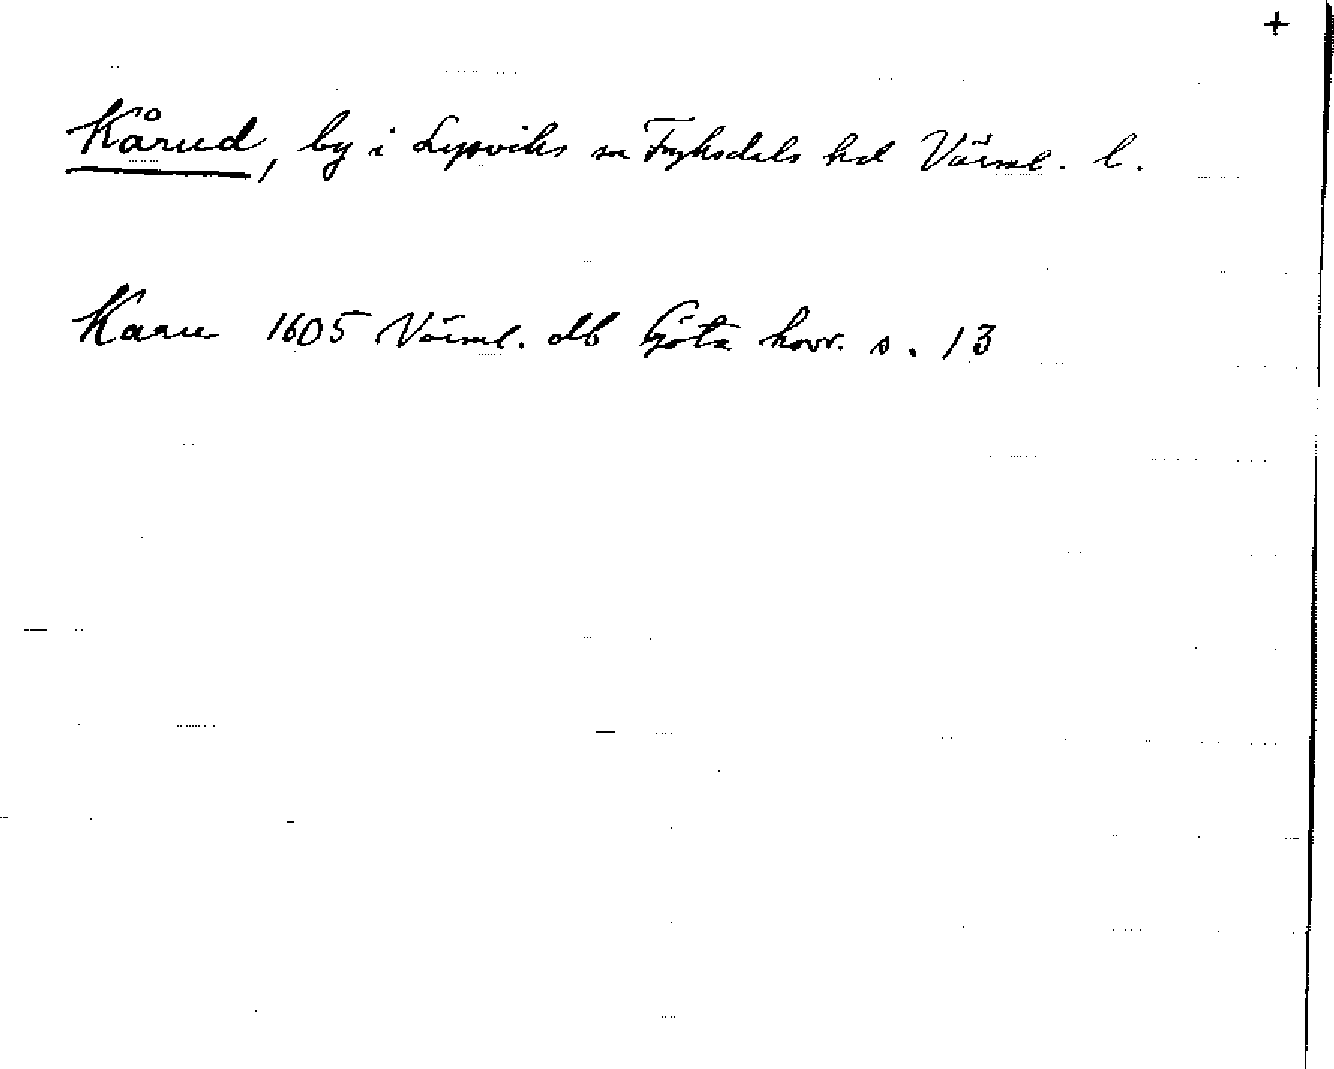 +
Kårud, by i Lysviks sn Fryksdals hd Värml. l.
Kaaru 1605 Värml. db Göta hovr. s. 13